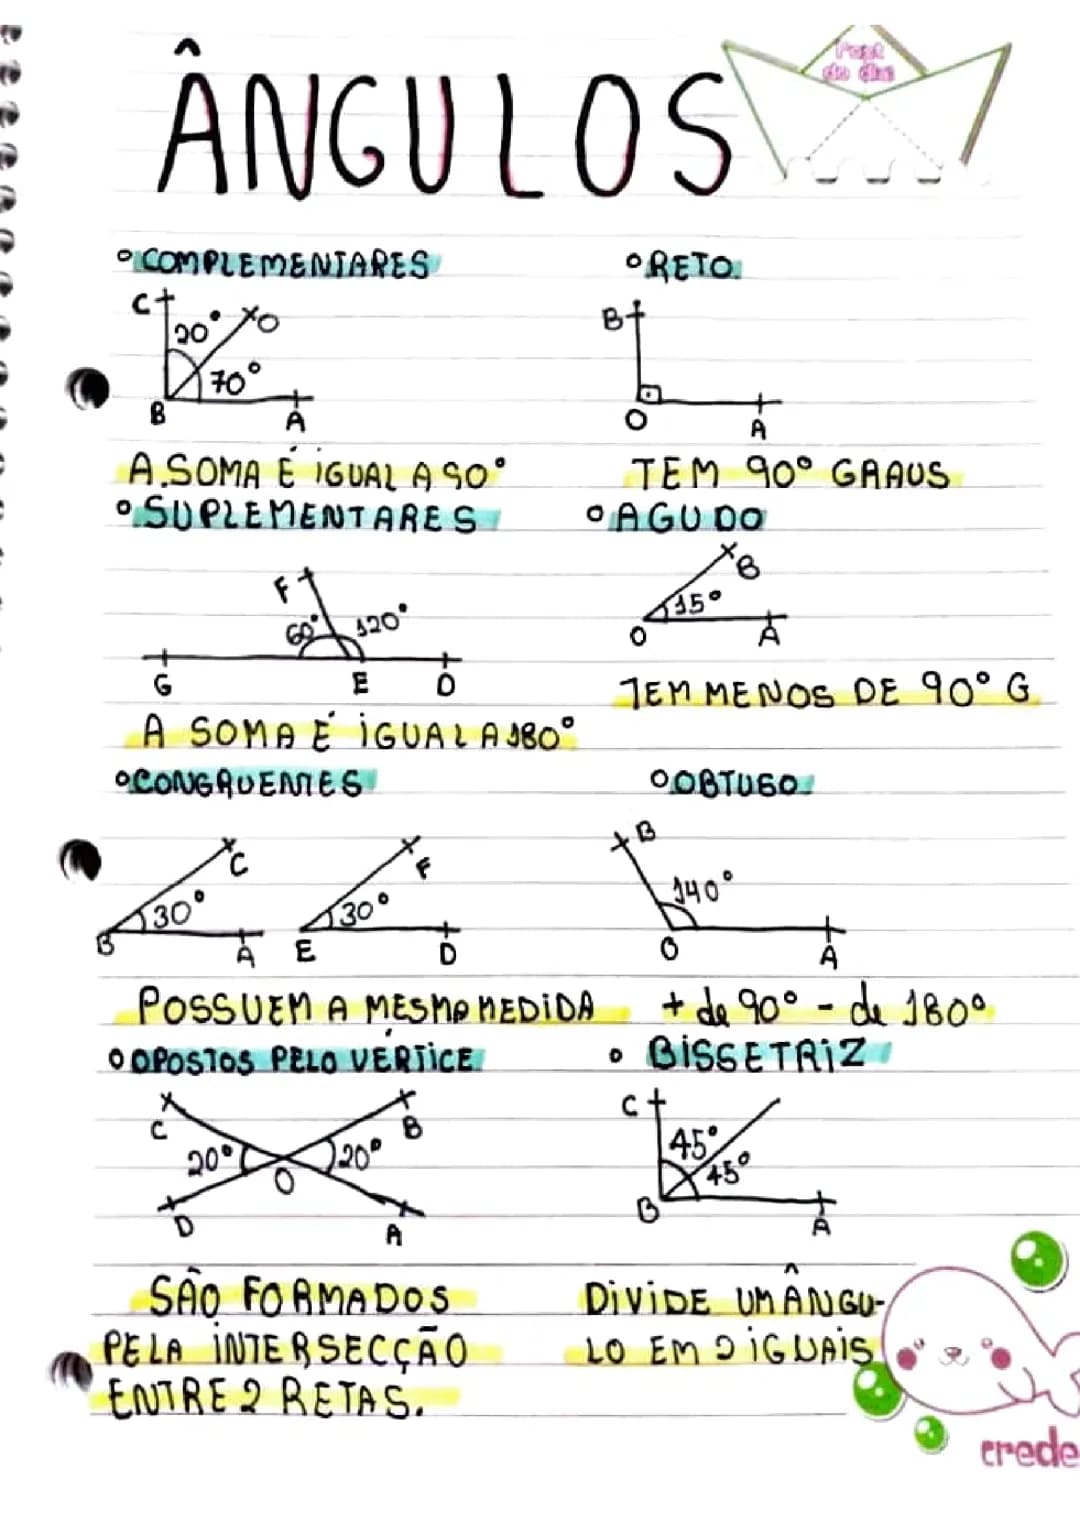 Post
do dia
ÂNGULOS
COMPLEMENTARES
C 20° O
70°
B A
A SOMA É IGUAL A 90°
RETO
B
O A
TEM 90° GRAUS
SUPLEMENTARES
F
60° 120°
G E D
A SOMA É IGUAL A 180°
AGUDO
B
15°
O A
TEM MENOS DE 90° G
CONGRUENTES
C F
30° 30°
B A E D
POSSUEM A MESMA MEDIDA
OBTUSO
B
140°
O A
+ de 90° - de 180°
OPOSTOS PELO VÉRTICE
C B
20° 20°
O
D A
SÃO FORMADOS
PELA INTERSECÇÃO
ENTRE 2 RETAS.
BISSETRIZ
C
45°
45°
B A
DIVIDE UM ÂNGU-
LO EM 2 IGUAIS
crede